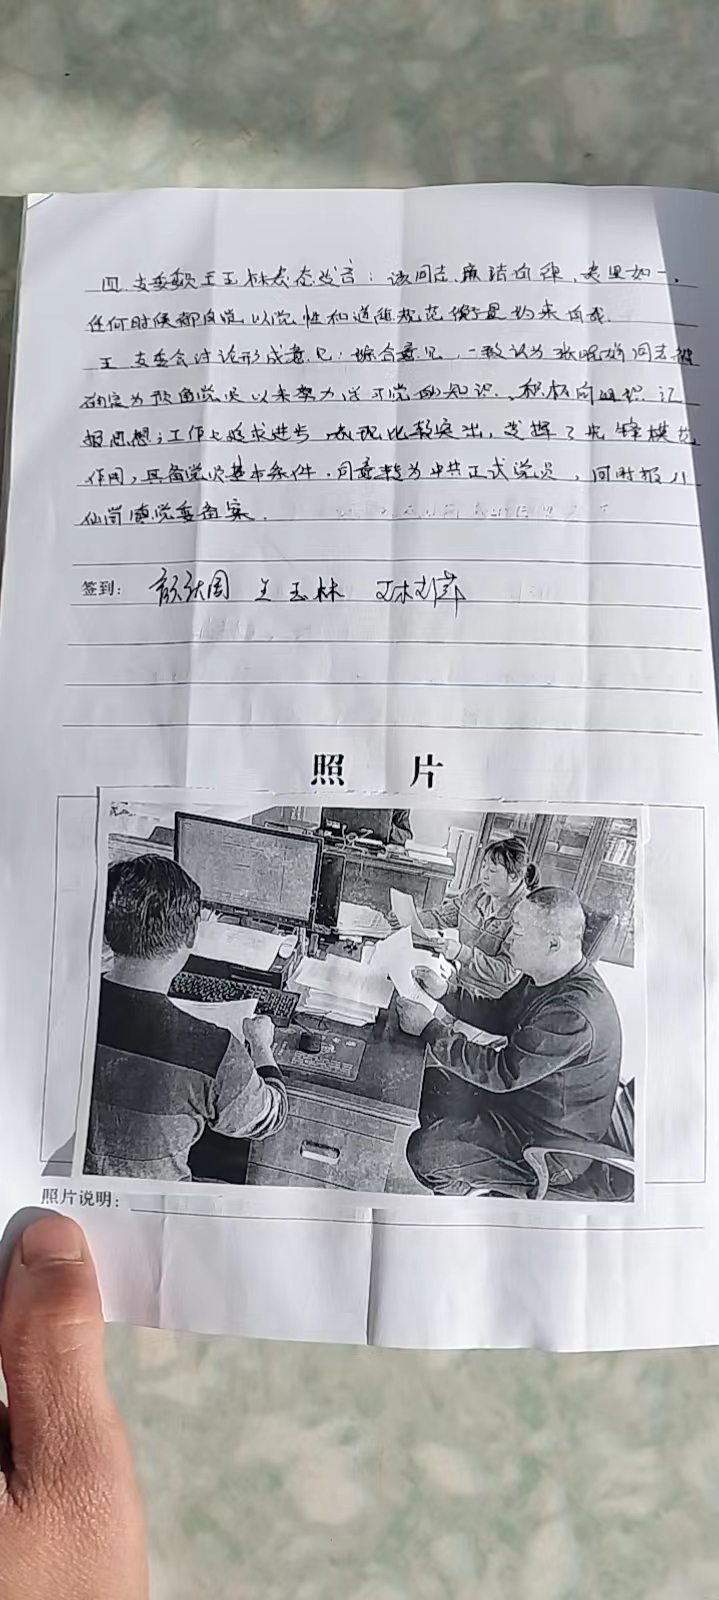 四、支委委员王玉林表态发言：该同志廉洁自律、表里如一，
任何时候都自觉以党性和道德规范衡量约束自我.
五、支委会讨论形成意见：综合意见，一致认为张晓娟同志被
确定为预备党员以来努力学习党的知识、积极向组织汇
报思想；工作上追求进步 表现比较突出，发挥了先锋模范
作用，具备党员基本条件.同意转为中共正式党员，同时报八
仙岗镇党委备案.
签到： 王玉林
照 片
照片说明：